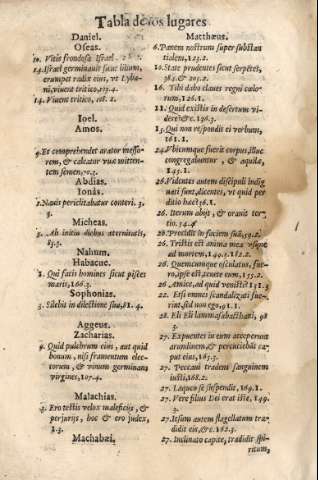 Tabla de los lugares
Daniel.
Oseas.
10. Vitis frondosa Israel
14. Israel germinavit sicut lilium,
erumpet radix eius, vt Lyba-
ni, vivent tritico, 113.4.
14. Vivent tritico,
Ioel.
Amos.
9. Et comprehendet arator messo-
rem, & calcator vuæ mitten-
tem semen,
Abdias.
Ionás.
1. Navis periclitabatur conteri.
Micheas.
5. Ab initio diebus æternitatis,
Nahum.
Habacuc.
1. Qui facis homines sicut pisces
maris, 166.3.
Sophonias.
3. Silebit in dilectione sua, 81.4.
Aggeus.
Zacharias.
9. Quid pulchrum eius, aut quid
bonum, nisi framentum elec-
torum, & vinum germinans
virgines, 107.4.
Malachias.
3. Ero testis velox maleficijs, &
perjurijs, hoc & ero judex,
Machabæi,
Matthæus.
6. Panem nostrum super substan
tialem, 123.2.
10. Estote prudentes sicut serpētes,
16. Tibi dabo claues regni cælo-
rum, 126.1.
11. Quid existis in desertum vi-
dere &c. 136.3.
15. Qui non respondit ei verbum,
161.1.
24. Vbicumque fuerit corpus, illuc
congregabuntur, & aquilæ,
145.1.
26. Videntes autem discipuli indig
nati sunt, dicentes, vt quid per
ditio hæc
26. Iterum abijt, & oravit ter-
tio,
26. Procidit in faciem suā, 59.2.
26. Tristis est anima mea vsque
ad mortem, 149.3.
26. Quemcumque osculatus, fue-
ro, ipse est, tenete eum, 155.2.
26. Amice, ad quid venisti?
22. Etsi omnes scandalizati fue-
rint, sed non ego,
28. Eli Eli lammasabacthani,
3.
27. Expuentes in eum acceperunt
arundinem, & percutiebāt ca-
put eius, 163.3.
27. Peccavi tradens sanguinem
iustū, 168.2.
27. Laqueo se suspendit, 169.1.
27. Vere filius Dei erat iste, 149.
3.
27. Iesum autem flagellatum tra-
didit eis, &c. 162.3.
27. Inclinato capite, tradidit spi-
ritum,